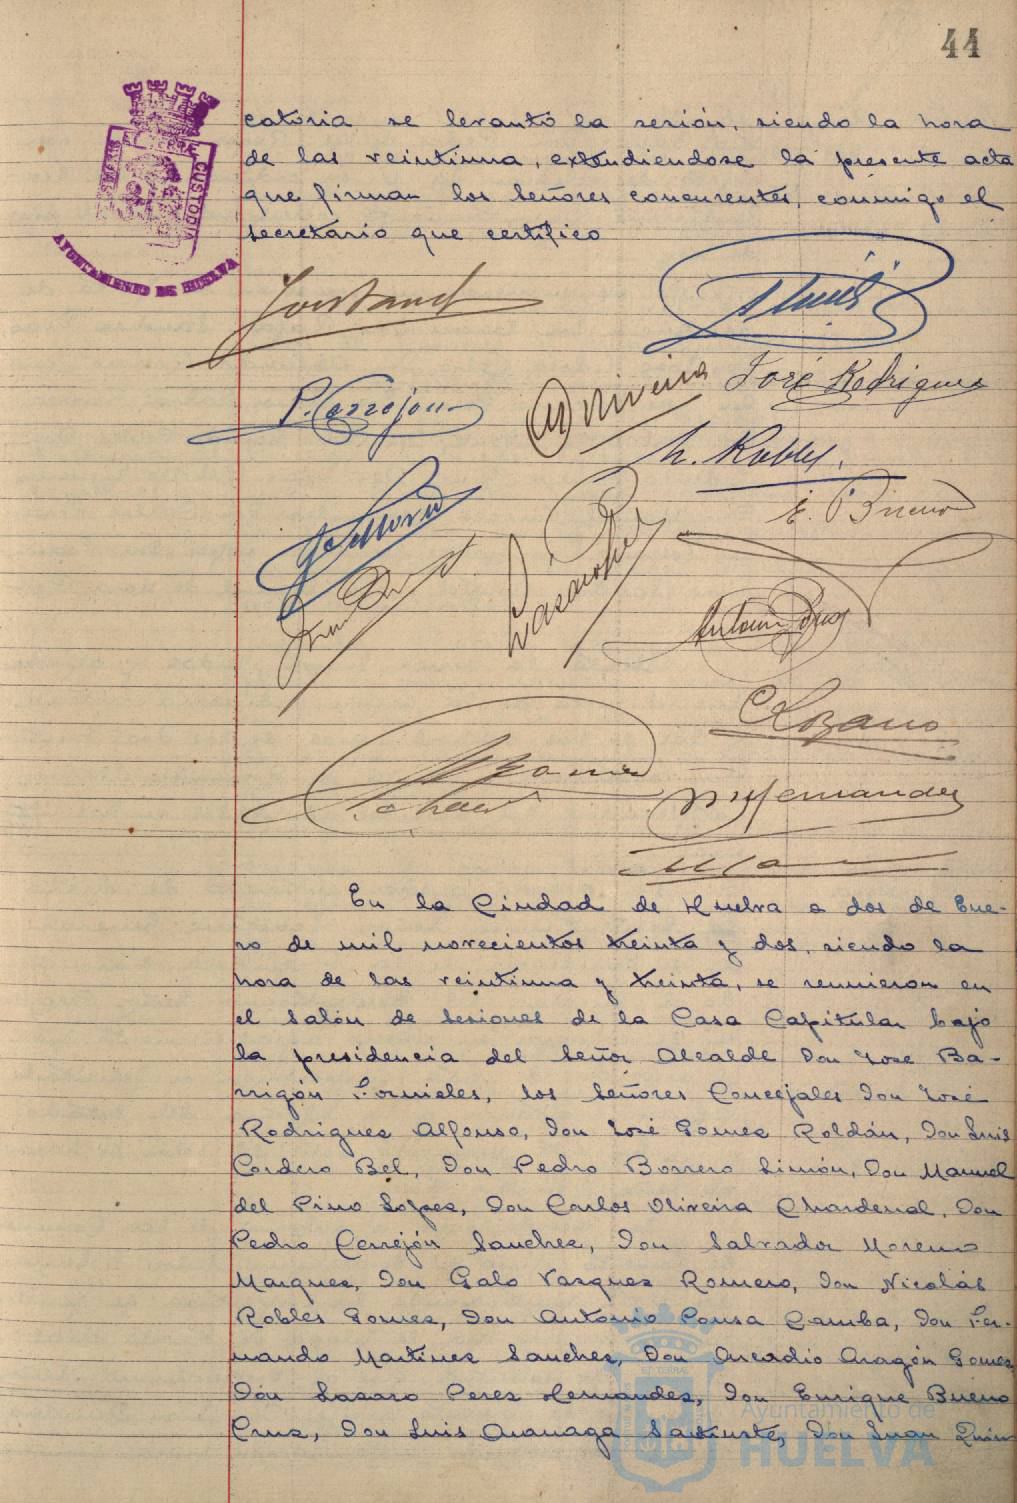 44
catoria se levantó la sesión, siendo la hora
de las veintiuna, extendiendose la presente acta
que firman los Señores concurrentes, conmigo el
secretario que certifico
CUSTODIA
AYUNTAMIENTO DE HUELVA
P. Cerrejón
Oliveira
José Rodrigues
N. Robles
S. Moreno
E. Bueno
Antonio
Lozano
Hernandez
En la Ciudad de Huelva a dos de Ene-
ro de mil novecientos treinta y dos, siendo la
hora de las veintiuna y treinta, se reunieron en
el Salón de Sesiones de la Casa Capitular bajo
la presidencia del Señor Alcalde Don José Ba-
rrigón Fornieles, los Señores Concejales Don José
Rodrigues Alfonso, Don José Gomes Roldán, Don Luis
Cordero Bel, Don Pedro Borrero Limón, Don Manuel
del Pino Lopes, Don Carlos Oliveira Chardenal, Don
Pedro Cerrejón Sanches, Don Salvador Moreno
Marques, Don Galo Vasques Romero, Don Nicolás
Robles Gomes, Don Antonio Pousa Camba, Don Fer-
nando Martines Sanches, Don Arcadio Aragón Gomes
Don Lasaro Peres Hernandes, Don Enrique Bueno
Crus, Don Luis Don Juan Quin
Ayuntamiento de
HUELVA